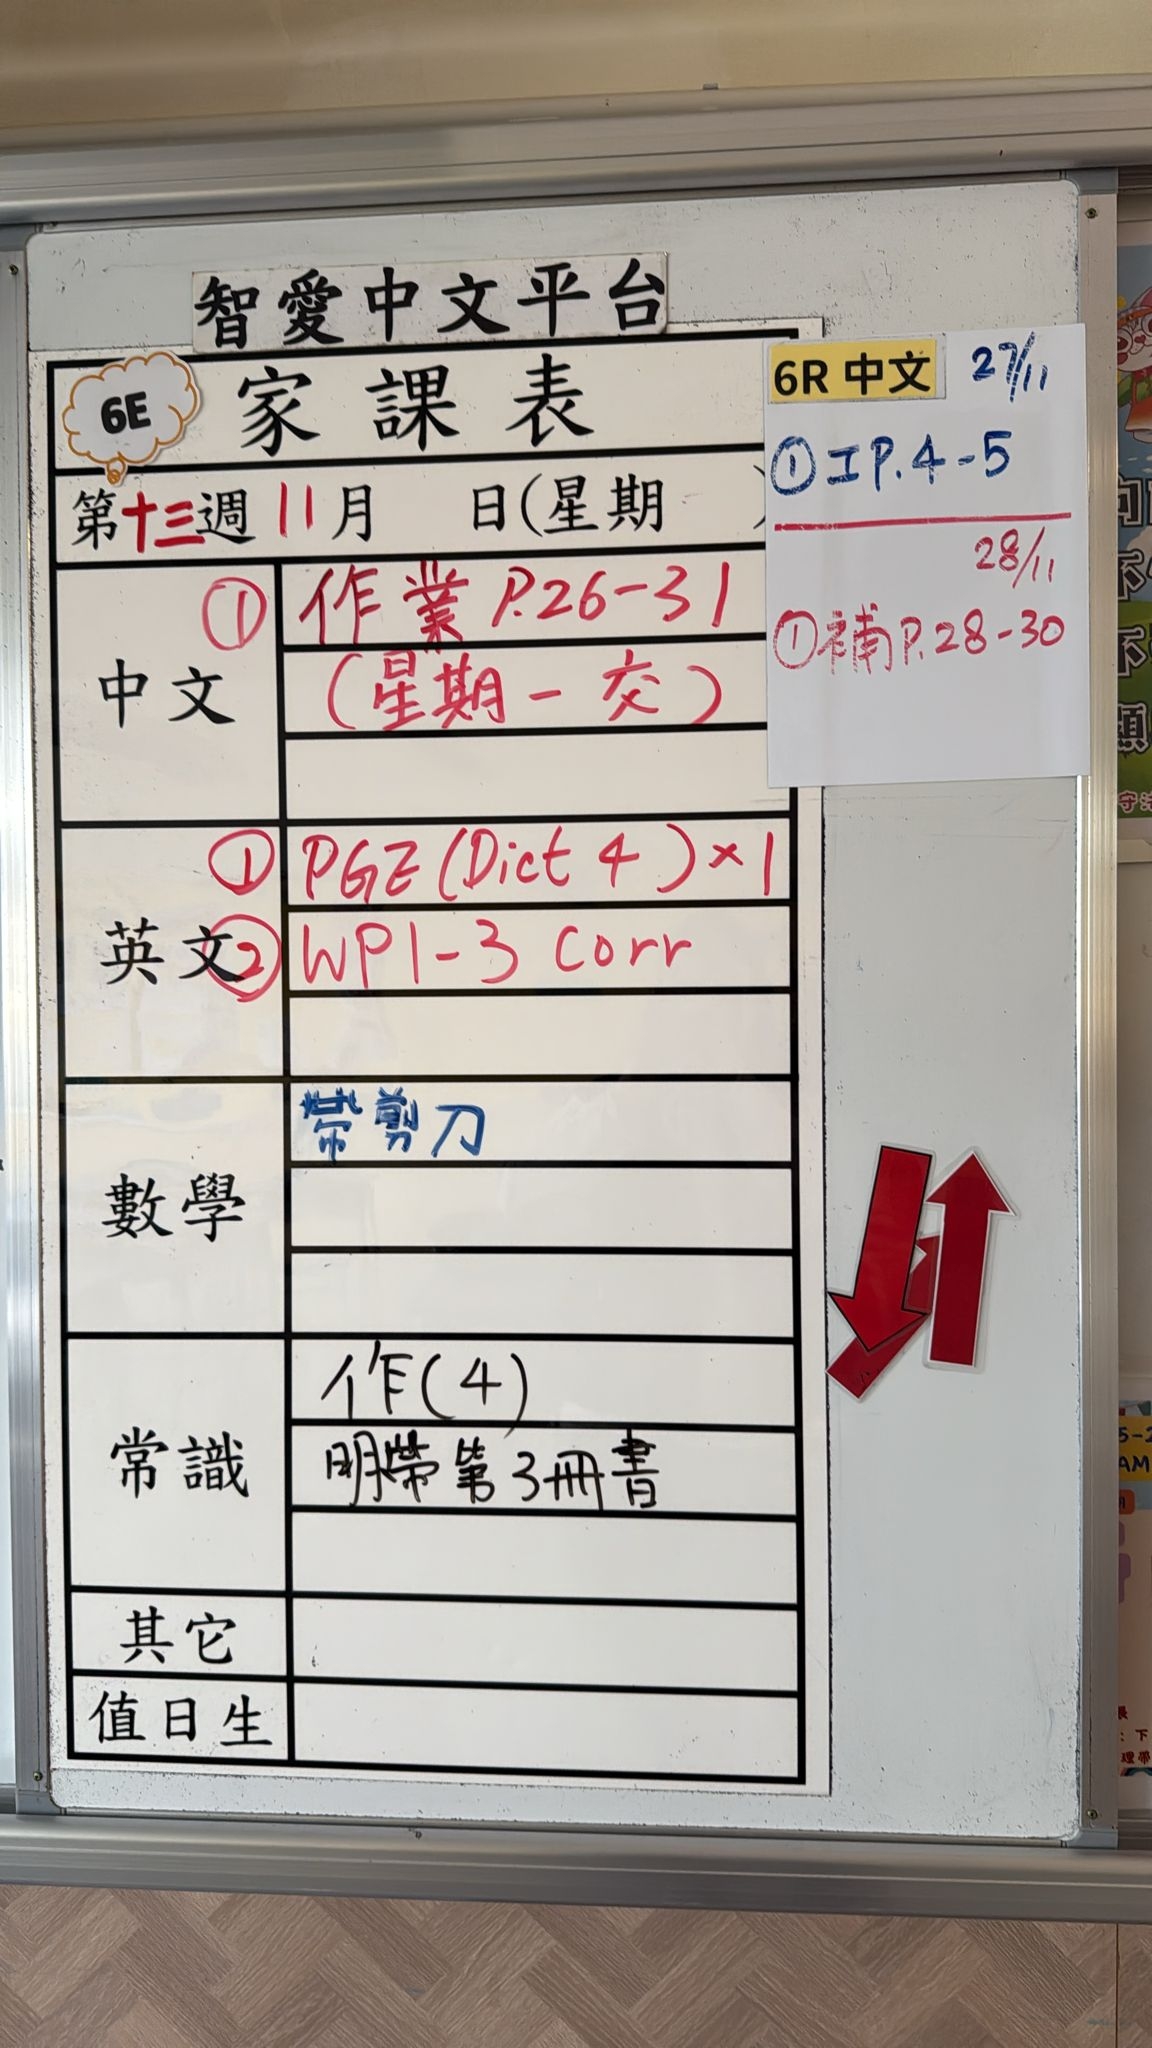 智愛中文平台
6E 家課表
第十三週 11月 日(星期 )
中文
① 作業 P.26-31
(星期一交)
英文
① PGE (Dict 4) × 1
② WP1-3 Corr
數學
帶剪刀
常識
作(4)
明帶第3冊書
其它
值日生
6R 中文 27/11
① 工P.4-5
28/11
① 補P.28-30